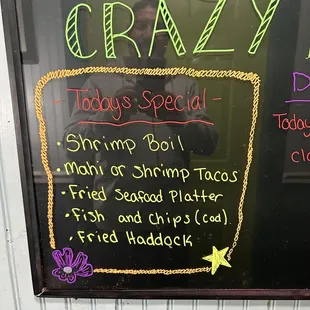 CRAZY
- Todays Special -
• Shrimp Boil
• mahi or Shrimp Tacos
• Fried Seafood Platter
• Fish and Chips (Cod)
• Fried Haddock